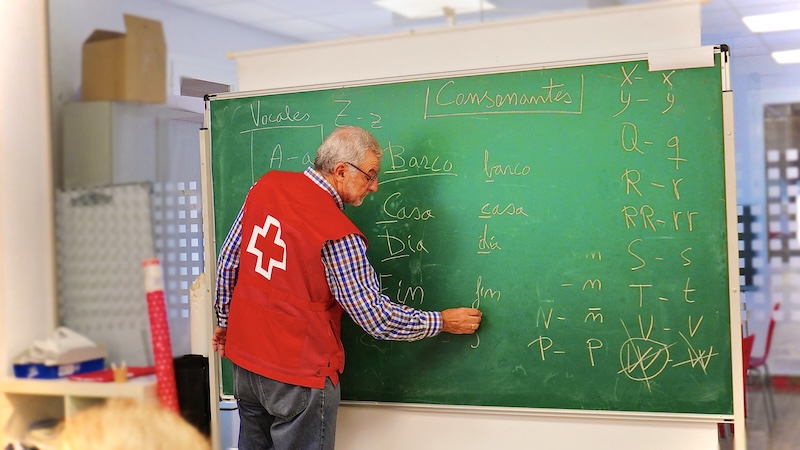 Vocales
A-a
Z-z
Consonantes
Barco barco
Casa casa
Día día
Fin fin
m
- m
N - n̄
P - p
X - x
y - y
Q - q
R - r
RR - rr
S - s
T - t
V - v
W - w